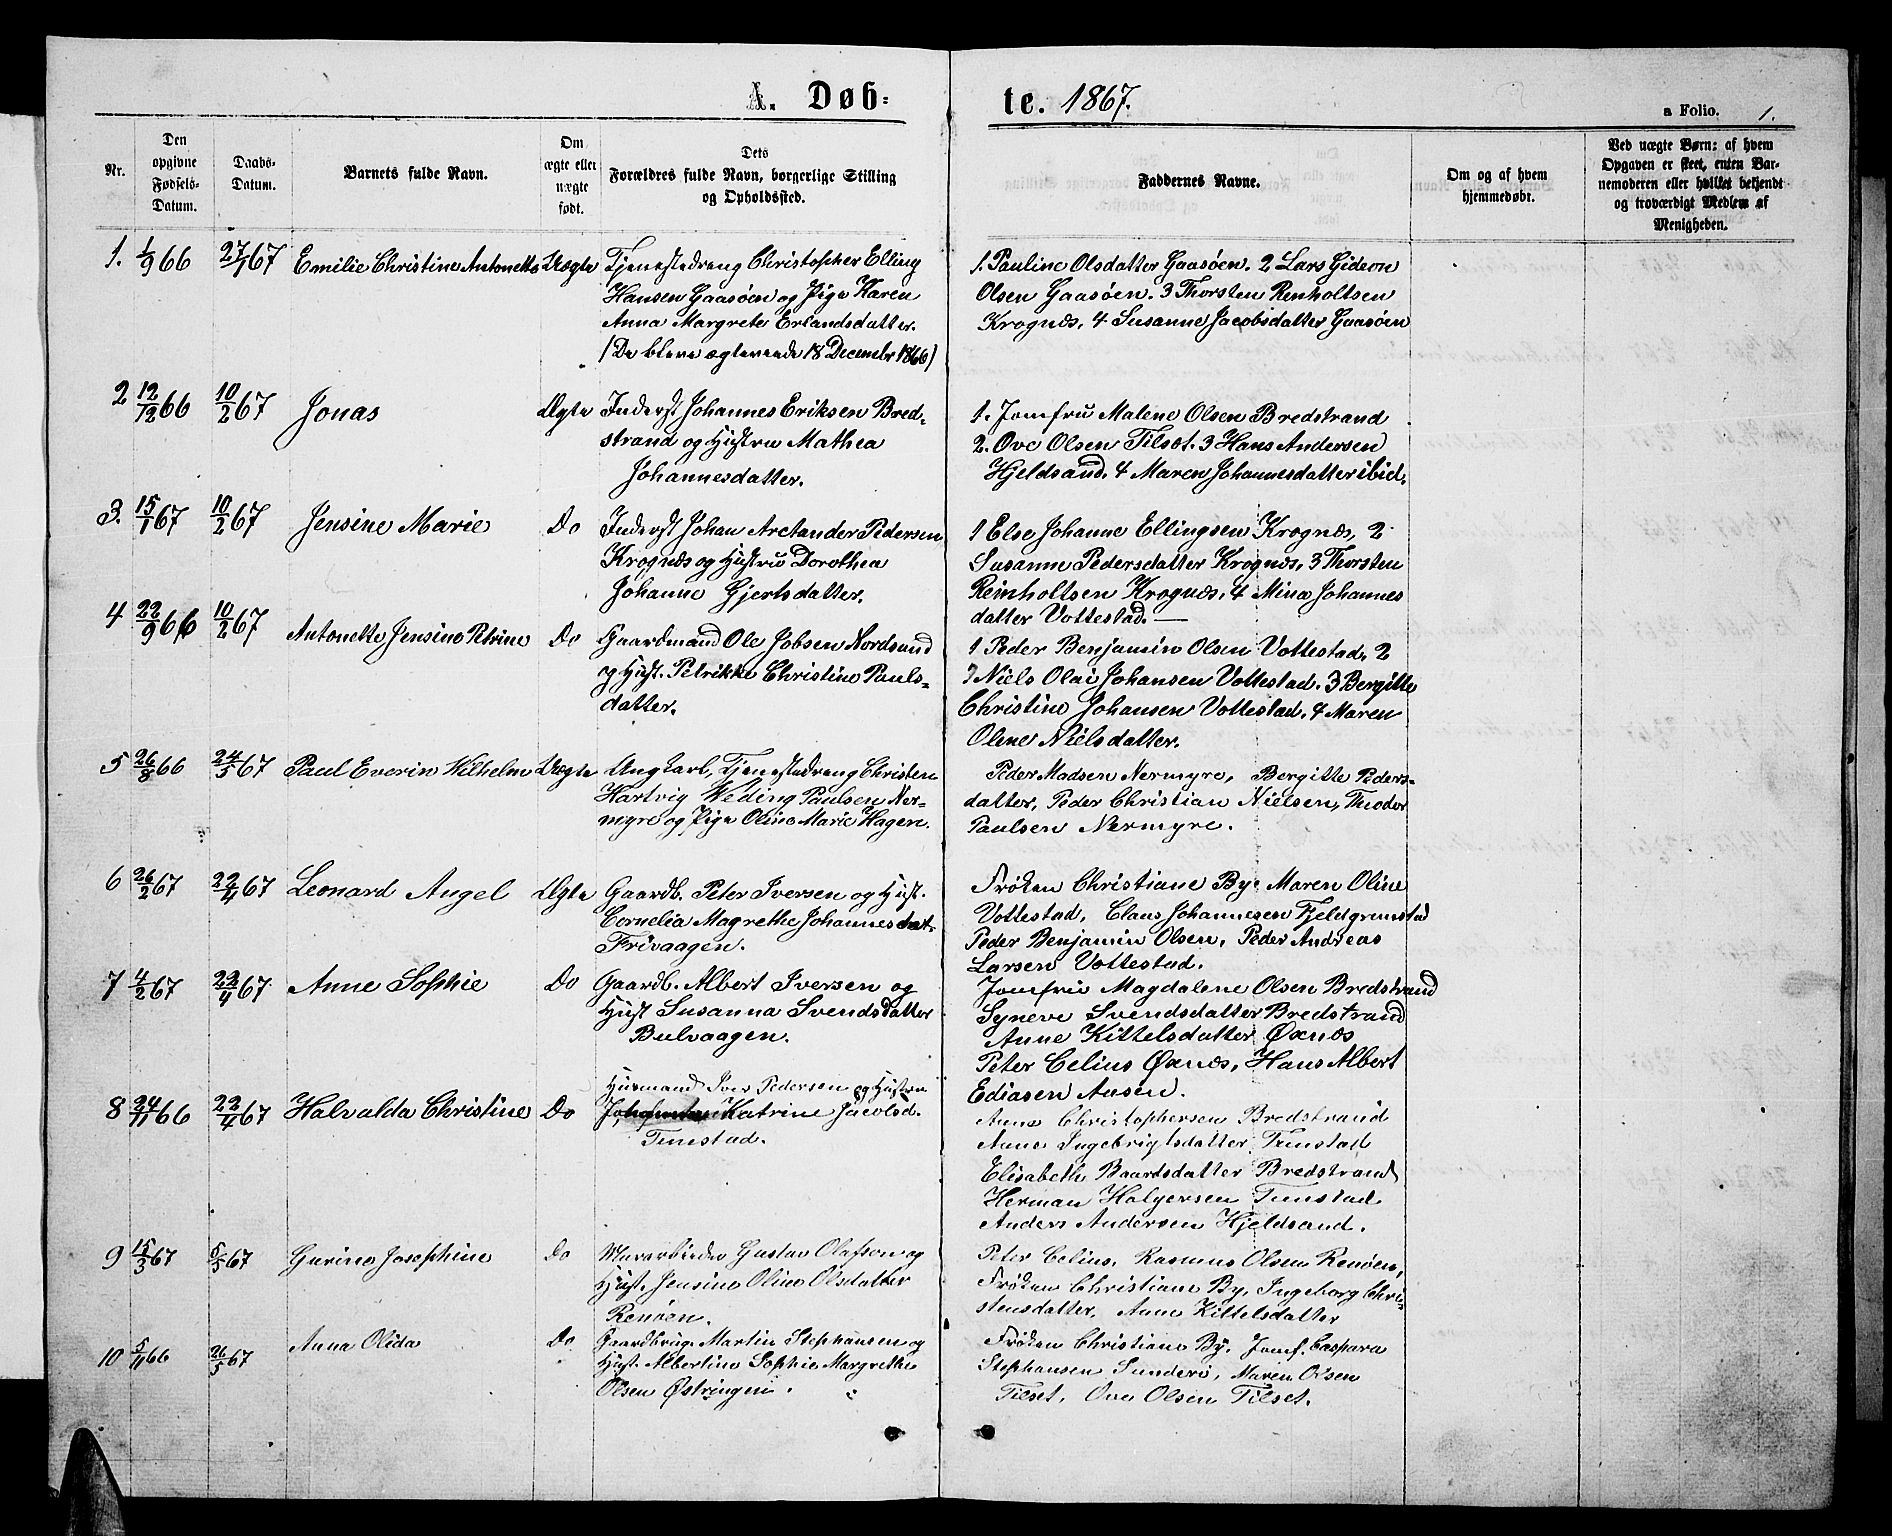 A. Døb-
te. 1867.
a Folio. 1.
Nr.
Den opgivne Fødsels-Datum.
Daabs-Datum.
Barnets fulde Navn.
Om ægte eller uægte født.
Dets Forældres fulde Navn, borgerlige Stilling og Opholdssted.
Faddernes Navne.
Om og af hvem hjemmedøbt.
Ved uægte Børn: af hvem Opgaven er skeet, enten Barnemoderen eller hvilket bekjendt og troværdigt Medlem af Menigheden.
1. 1/9 66 27/1 67 Emilie Christine Antonette Uægte
Tjenestedreng Christopher Elling
Hansen Gaasøen og Pige Karen
Anna Margrete Erlandsdatter.
(De bleve ægteviede 18 Decembr 1866)
1. Pauline Olsdatter Gaasøen. 2 Lars Gideon
Olsen Gaasøen. 3 Thorsten Renholtsen
Krognæs, 4 Susanne Jacobsdatter Gaasøen
2 12/12 66 10/2 67 Jonas Ægte
Inderst Johannes Eriksen Bred-
strand og Hustru Mathea
Johannesdatter.
1. Jomfru Malene Olsen Bredstrand
2. Ove Olsen Tilset. 3 Hans Andersen
Hjeldsand. 4 Maren Johannesdatter ibid.
3. 15/1 67 10/2 67 Jensine Marie Do
Inderst Johan Arctander Pedersen
Krognæs og Hustru Dorothea
Johanne Gjertsdatter.
1 Else Johanne Ellingsen Krognæs, 2
Susanne Pedersdatter Krognæs, 3 Thorsten
Reinholtsen Krognæs, 4 Mina Johannes
datter Vottestad.
4 22/9 66 10/2 67 Antonette Jensine Petrine Do
Gaardmand Ole Jobsen Nordsand
og Hust. Petrikke Christine Pauls-
datter.
1 Peder Benjamin Olsen Vottestad, 2
Niels Olai Johansen Vottestad. 3 Bergitte
Christine Johansen Vottestad. 4 Maren
Oline Nielsdatter.
5 26/8 66 24/5 67 Paul Everin Wilhelm Uægte
Ungkarl, Tjenestedreng Christen
Hartvig Weding Paulsen Ner-
myre og Pige Oline Marie Hagen.
Peder Madsen Nermyre, Bergitte Peders-
datter, Peder Christian Nielsen, Theodor
Paulsen Nermyre.
6 26/2 67 22/4 67 Leonard Angel Ægte
Gaardb. Peter Iversen og Hust.
Cornelia Magrethe Johannesdat.
Frivaagen.
Frøken Christiane By. Maren Oline
Vottestad, Claus Johannesen Fjeldgrunstad
Peder Benjamin Olsen, Peder Andreas
Larsen Vottestad.
7 4/2 67 22/4 67 Anne Sophie Do
Gaardb. Albert Iversen og
Hust Susanna Svendsdatter
Bulvaagen.
Jomfru Magdalene Olsen Bredstrand
Syneve Svendsdatter Bredstrand
Anne Kittelsdatter Øxnæs
Peter Celius Øxnæs, Hans Albert
Ediasen Aasen.
8 24/11 66 22/4 67 Halvalda Christine Do
Husmand Iver Pedersen og Hustru
Katrine Jacobsd.
Tunstad.
Anne Christophersen Bredstrand
Anne Ingebrigtsdatter Tunstad
Elisabeth Baardsdatter Bredstrand
Herman Holgersen Tunstad
Anders Andersen Hjeldsand.
9 15/3 67 5/5 67 Gurine Josephine Do
Murarbeider Gustav Olafson og
Hust. Jensine Oline Olsdatter
Renøen.
Peter Celius, Rasmus Olsen Renøen,
Frøken Christiane By, Ingeborg Chri-
stensdatter, Anne Kittelsdatter
10 5/11 66 26/5 67 Anna Olida Do
Gaardbrug. Martin Stephansen og
Hust. Albertine Sophie Margrethe
Olsen Østringen.
Frøken Christiane By, Jomf. Caspara
Stephansen Sunderø, Maren Olsen
Tilset, Ove Olsen Tilset.